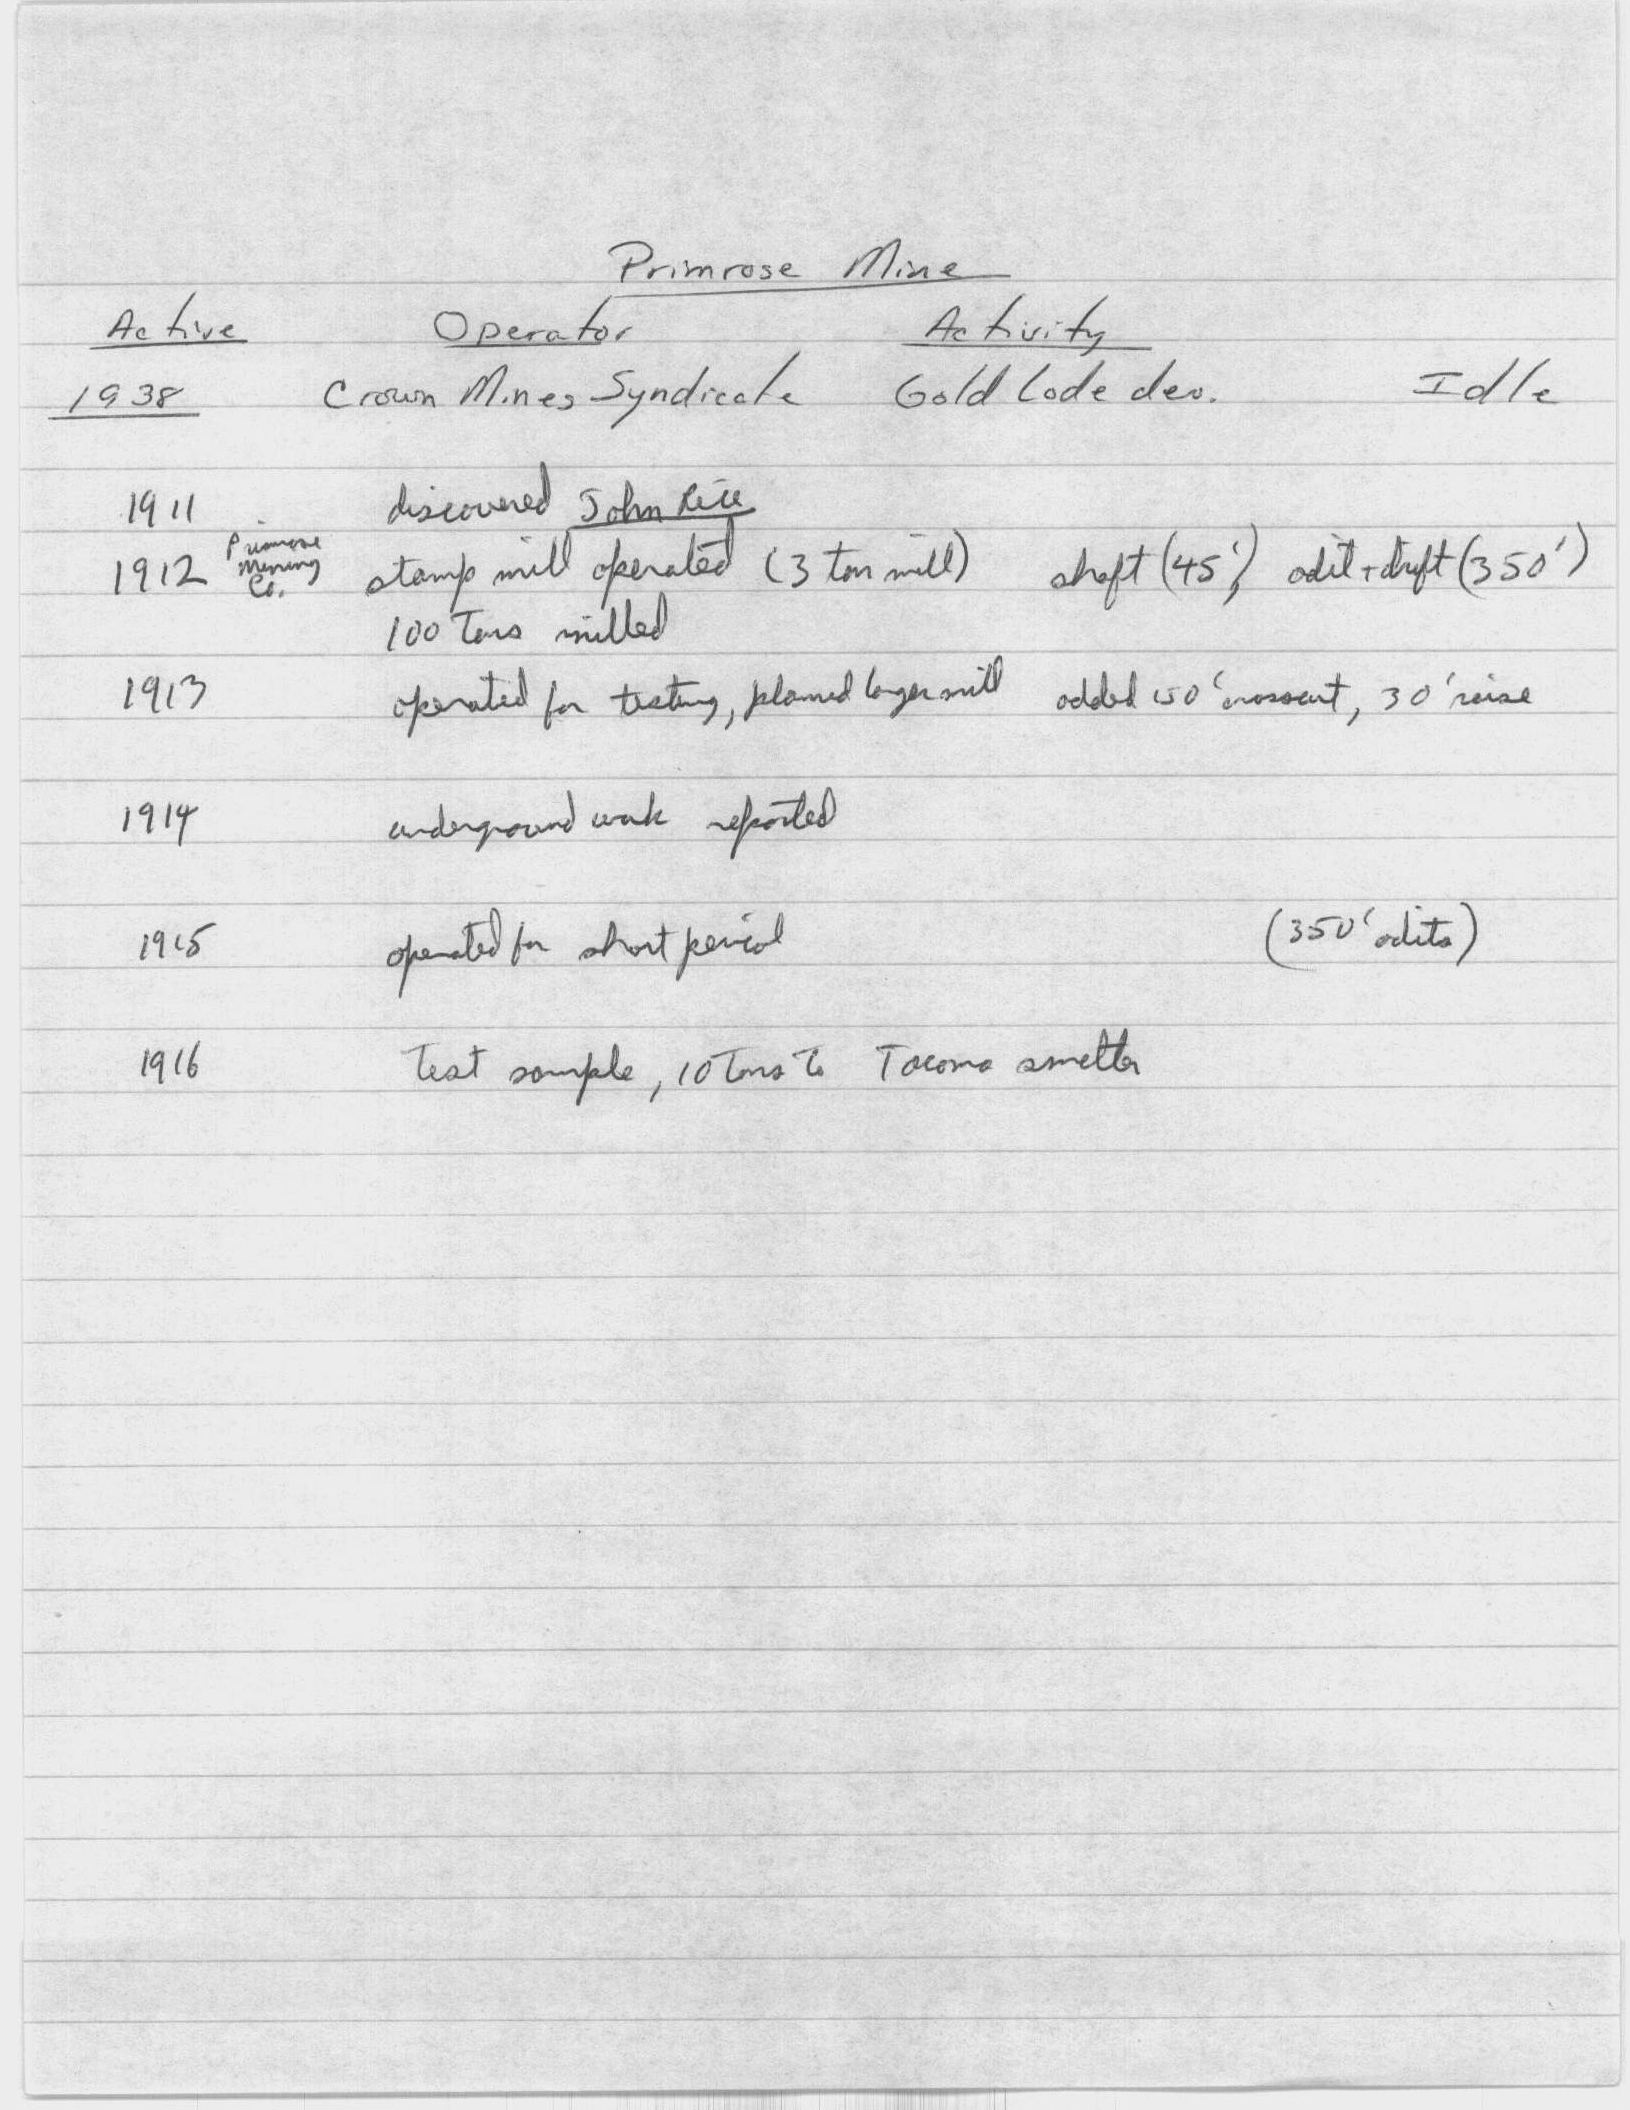 Primrose Mine
Active Operator Activity
1938 Crown Mines Syndicate Gold Lode dev. Idle
1911 discovered John Rice
1912 Primrose Mining Co. stamp mill operated (3 ton mill) shaft (45'), adit + drift (350')
100 Tons milled
1913 operated for testing, planned larger mill added 150' crosscut, 30' raise
1914 underground work reported
1915 operated for short period (350' adits)
1916 Test sample, 10 Tons to Tacoma smelter